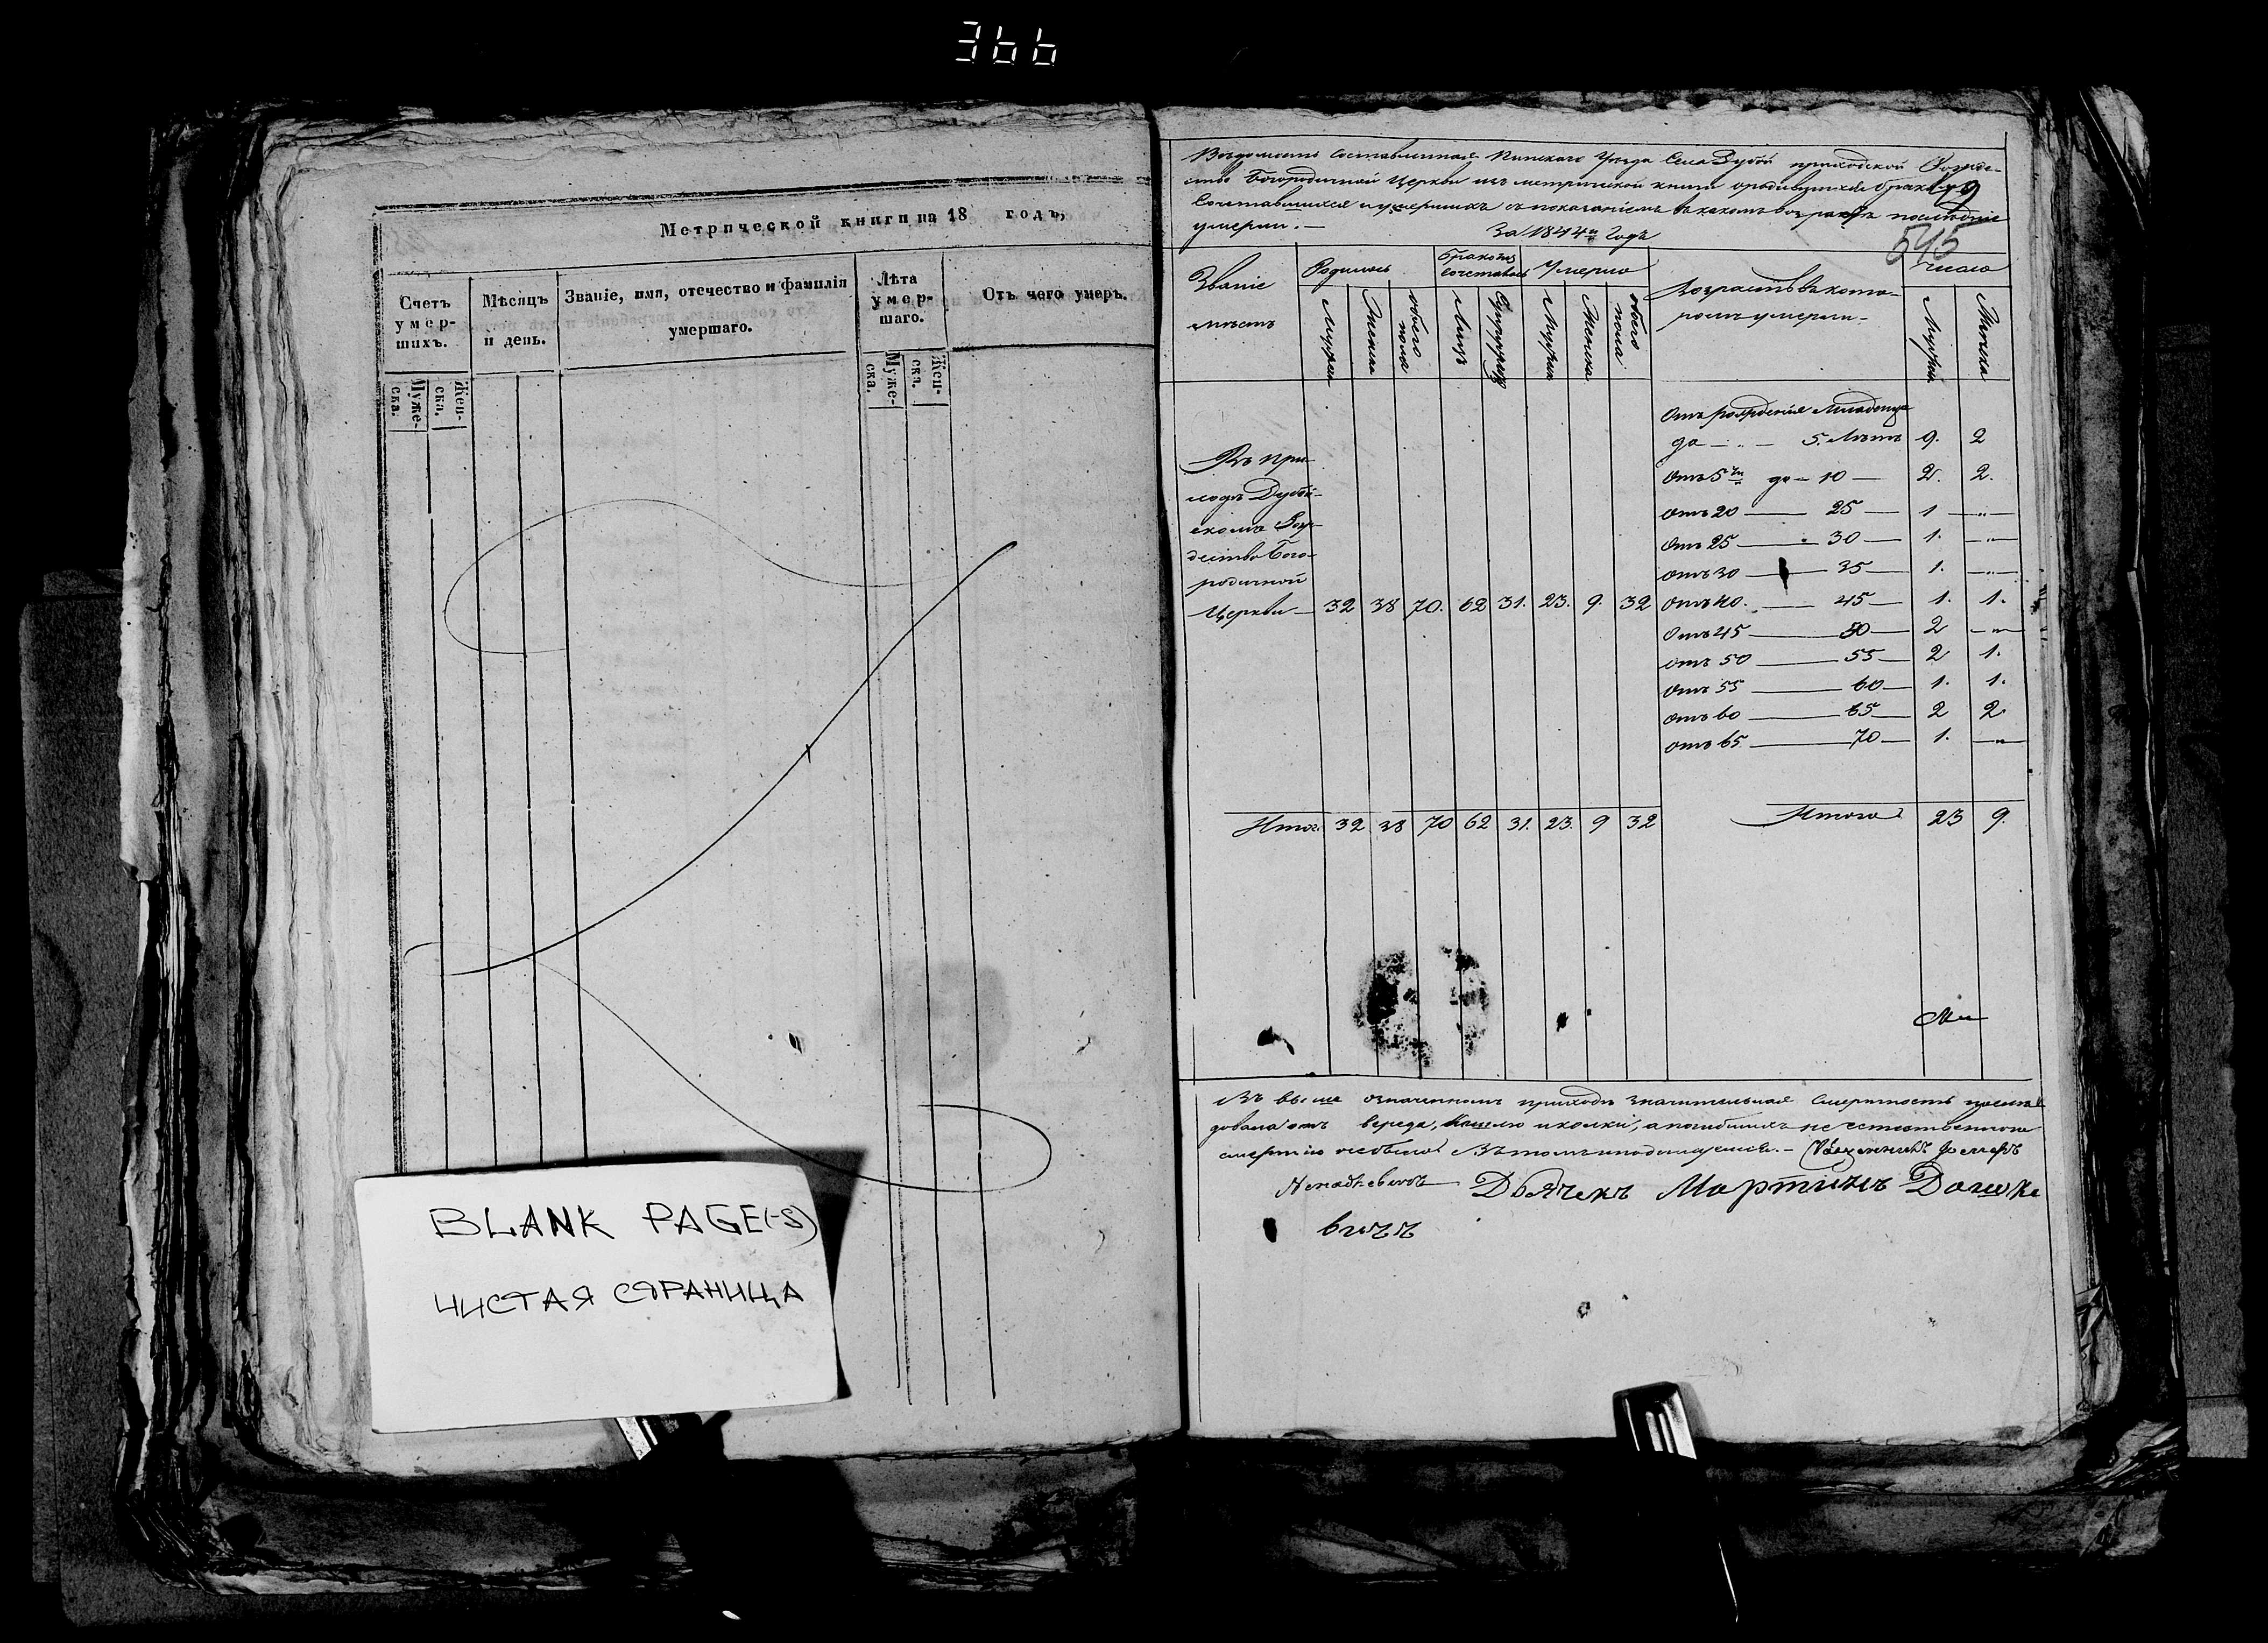 366
Метрической книги на 18 годъ,
Счетъ умер-шихъ.
Мѣсяцъ и день.
Званіе, имя, отчество и фамилія умершаго.
Лѣта умер-шаго.
Отъ чего умеръ.
Муже-ска.
Жен-ска.
Муже-ска.
Жен-ска.
BLANK PAGE(-S)
ЧИСТАЯ СТРАНИЦА
Вѣдомость составленная Пинскаго Уѣзда Села Дубой приходской Рожде-
ство Богородичной Церкви изъ метрической книги о родившихся бракомъ
Сочетавшихся и умершихъ съ показаніемъ въ какомъ возрастѣ последніе
умерли. — За 1844й Годъ
19
545
Званіе мѣстъ
Родилось
Бракомъ сочеталось
Умерло
Возрастъ въ кото-
ромъ умерли
Число
Мужеска
Женска
обоего пола
Лицъ
Супружествъ
Мужеска
Женска
обоего пола
Мужеска
Женска
Отъ рожденія Младенца
до — 5. Лѣтъ 9. 2
Отъ 5ти до — 10 — 2. 2.
Отъ 20 — 25 — 1 — „ —
Отъ 25 — 30 — 1. — „ —
Отъ 30 — 35 — 1. — „ —
Отъ 40. — 45 — 1. 1.
Отъ 45 — 50 — 2 — „ —
Отъ 50 — 55 — 2 1.
Отъ 55 — 60 — 1. 1.
Отъ 60 — 65 — 2 2
Отъ 65 — 70 — 1. — „ —
Въ При-
ходѣ Дубой-
скомъ Рож-
дество Бого-
родичной
Церкви — 32 38 70. 62 31. 23. 9. 32
Итог. 32 38 70 62 31. 23. 9 32
Итого 23 9.
Въ выше означенномъ приходѣ значительная Смертность послѣ-
довала отъ вереда, кашлю и колки, а погибшихъ не естественною
смертію не было. Въ томъ и подписуемся. — Священникъ
Дьячекъ Мартинъ Дашке
вичъ